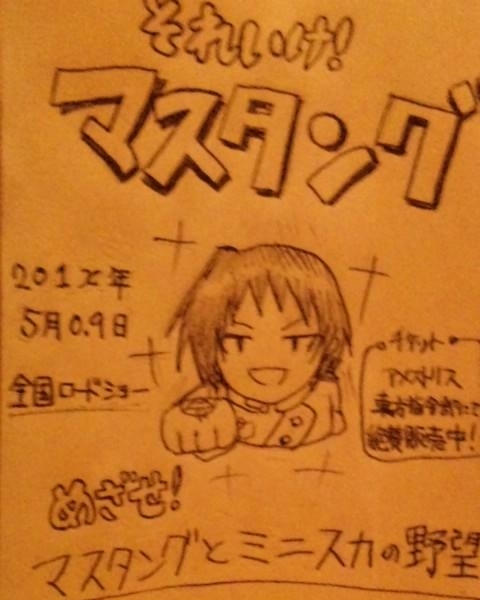 それいけ!
マスタング
201X年
5月0.9日
全国ロードショー
チケット
アメストリス
東方指令部にて
絶賛販売中!
めざせ!
マスタングとミニスカの野望